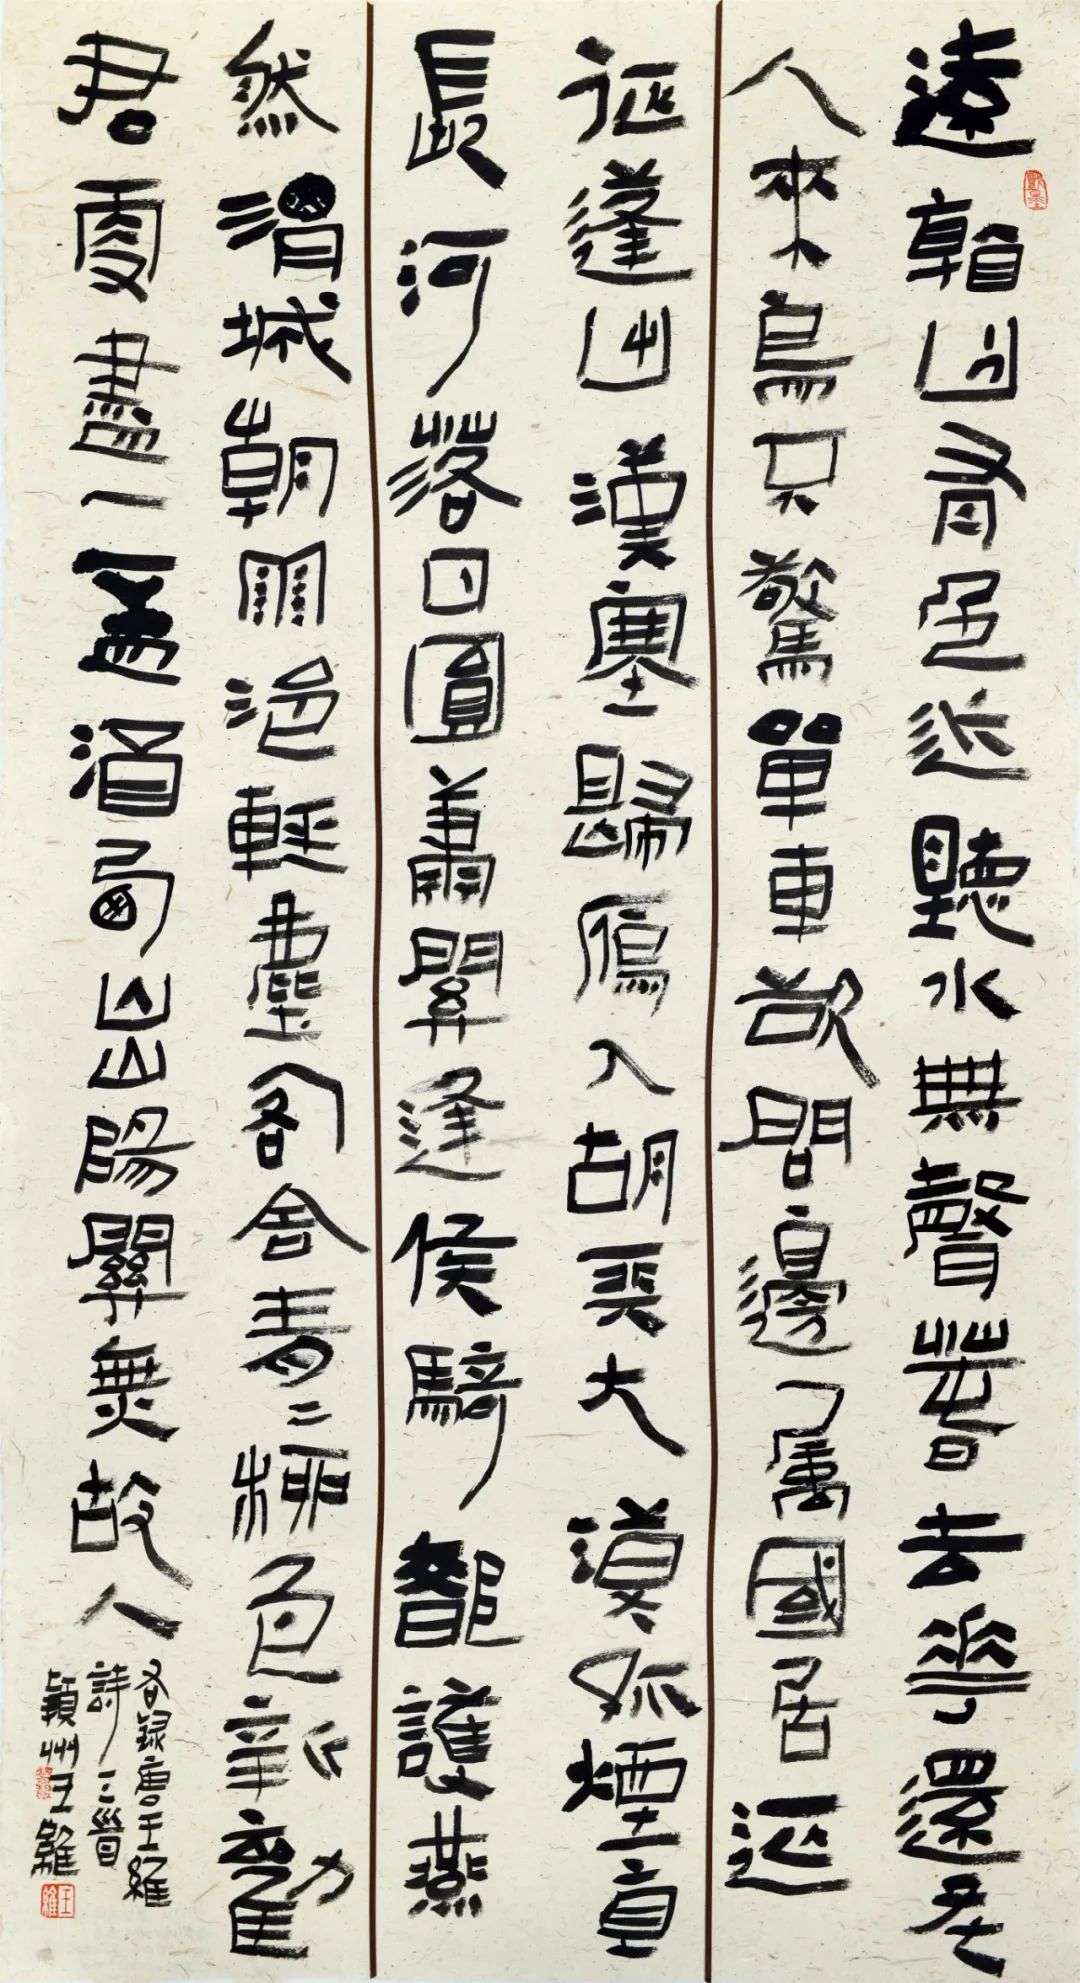 遠看山有色近聽水無聲春去花還在
人來鳥不驚單車欲問邊屬國居延
征蓬出漢塞歸雁入胡天大漠孤煙直
長河落日圓蕭關逢侯騎都護燕
然渭城朝雨浥輕塵客舍青〻柳色新勸
君更盡一盃酒西出陽關無故人
右錄唐王維
詩三首
穎州王